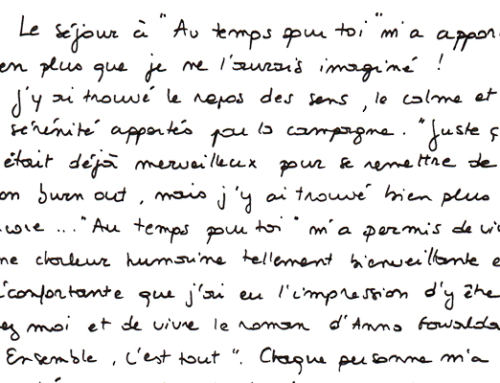 Le séjour à "Au temps pour toi" m'a appor
en plus que je ne l'aurais imaginé !
J'y ai trouvé le repos des sens, le calme et
sérénité apportés par la campagne. "Juste ç
était déjà merveilleux pour se remettre de
on burn out, mais j'y ai trouvé bien plus
core ... "Au temps pour toi" m'a permis de vi
ne chaleur humaine tellement bienveillante e
éconfortante que j'ai eu l'impression d'y être
ez moi et de vivre le roman d'Anna Gavalda
Ensemble, c'est tout". Chaque personne m'a